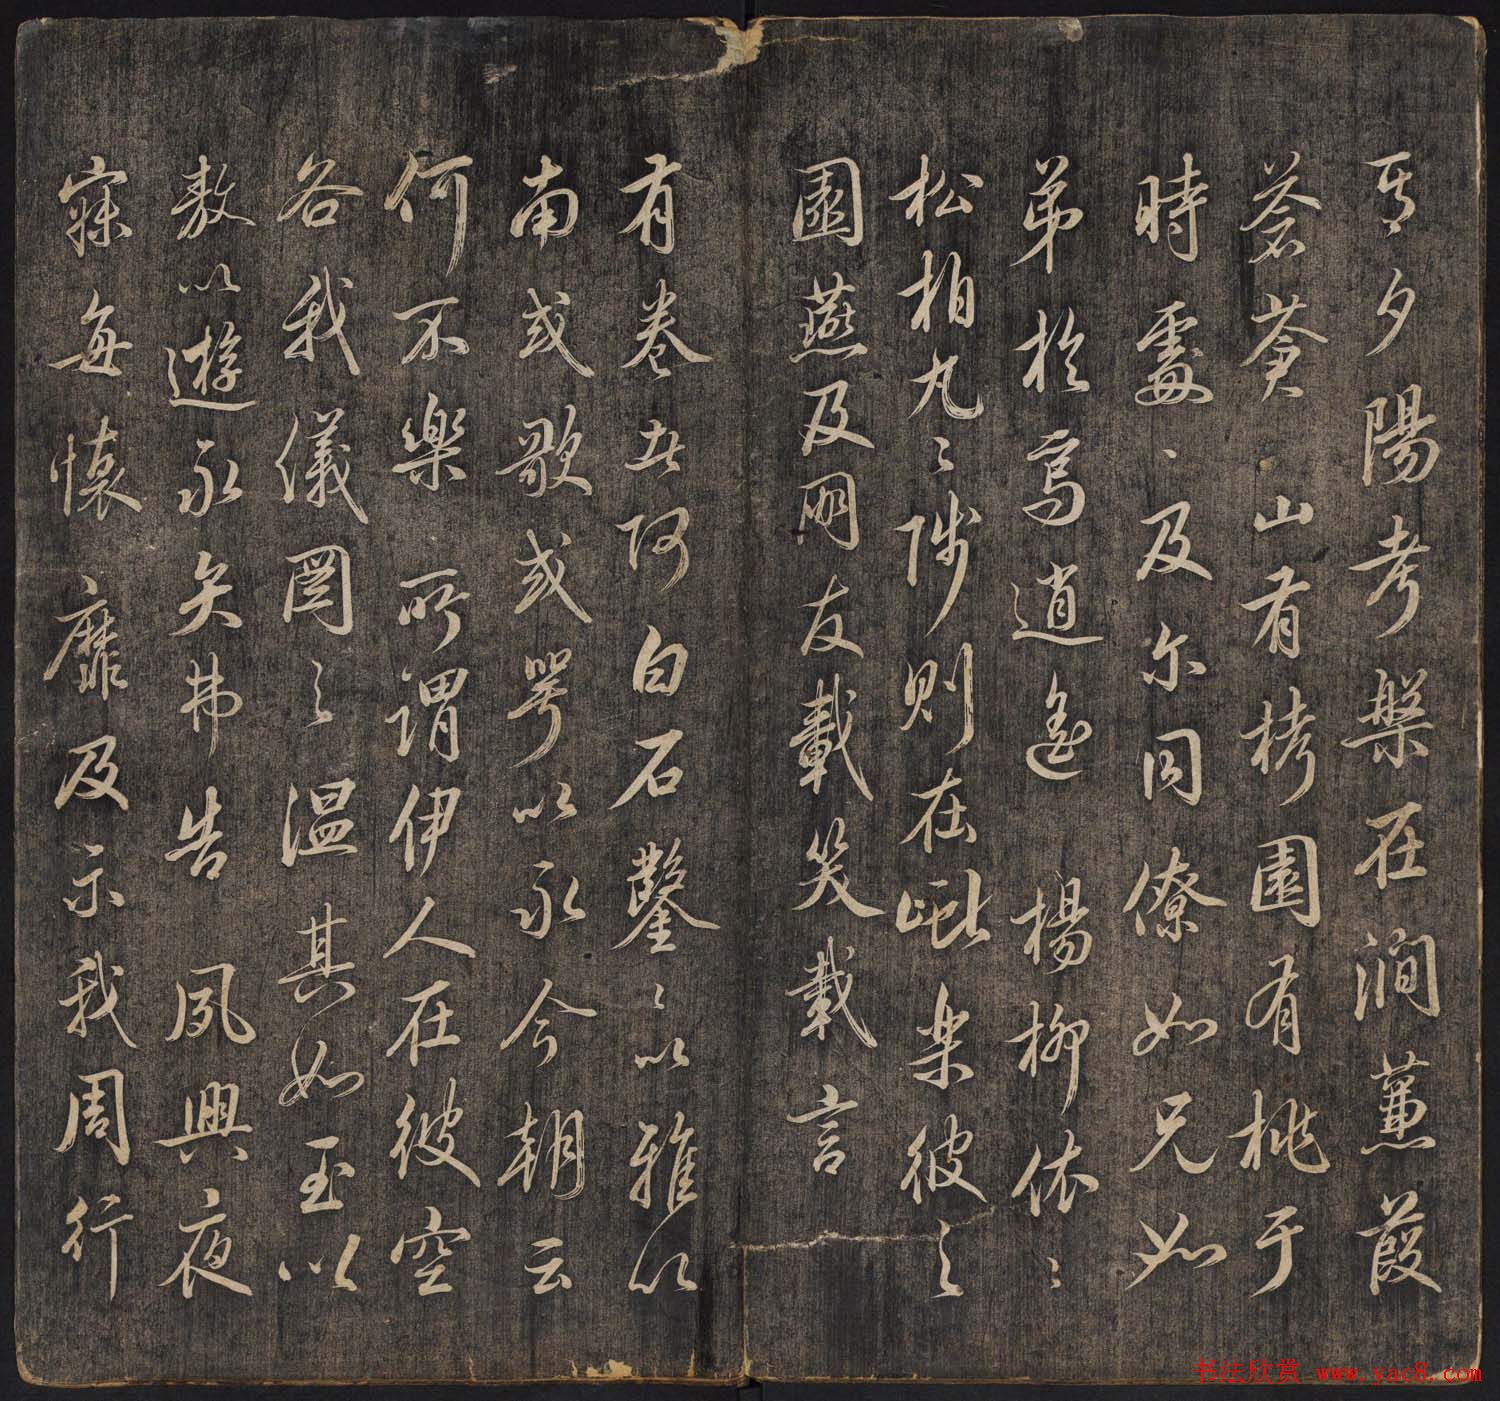 其夕陽考槃在澗蒹葭
蒼蒼山有栲園有桃于
時處〻及尔同僚如兄如
弟於焉逍遥楊柳依〻
松柏丸〻陟則在巘樂彼之
園燕及朋友載笑載言
有卷者阿白石鑿〻以雅以
南或歌或咢以永今朝云
何不樂所謂伊人在彼空
谷我儀圖之温其如玉以
敖以遊永矢弗告夙興夜
寐每懷靡及示我周行
书法欣赏 www.yac8.com